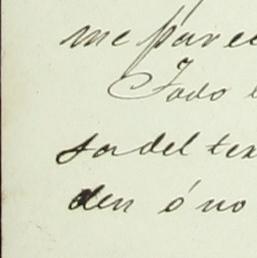 me parec
Todo l
sa del tex
den ó no